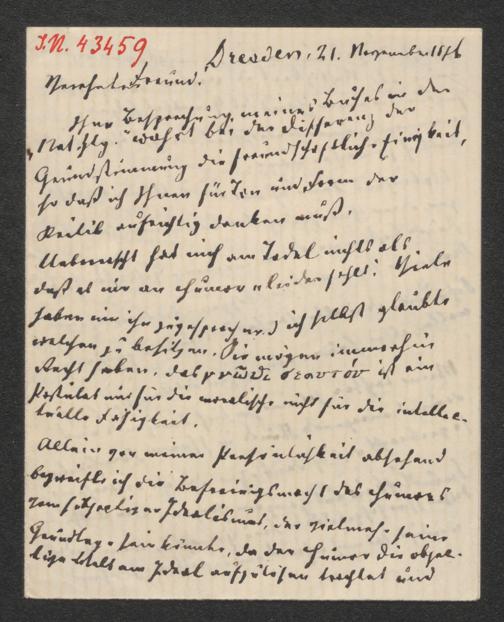 I.N. 43459
Dresden, 21. November 1876
Verehrter Freund.
Ihre Besprechung meines Buches in der
"Nat.Ztg." wahrt bei der Differenz der
Grundstimmung die freundschaftliche Einigkeit,
so daß ich Ihnen für Ton und Form der
Kritik aufrichtig danken muß.
Ueberrascht hat mich am Tadel nichts als
daß es mir an Humor fehle! Viele
haben mir ihn zugesprochen, ich selbst glaubte
welchen zu besitzen. Sie mögen immerhin
Recht haben. das γνῶθι σεαυτόν ist ein
Postulat nur für die moralische nicht für die intellec-
tuelle Fähigkeit.
Allein von meiner Persönlichkeit absehend
begreife ich die Befreiungsmacht des Humors
vom Idealismus, der vielmehr seine
Grundlage sein könnte, da der Humor die
Welt am Ideal trachtet und